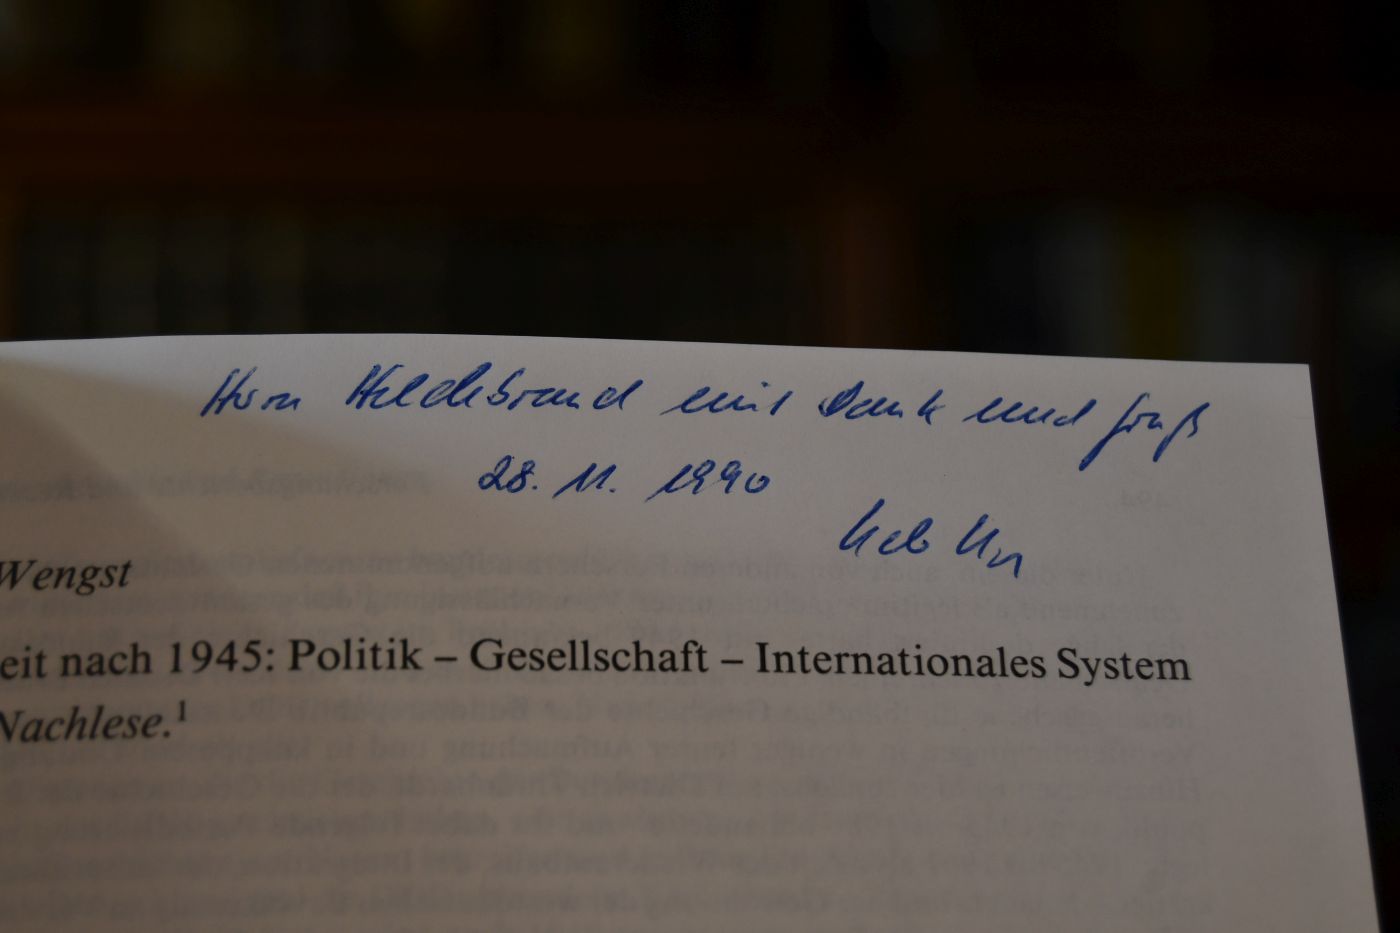 Herrn Hildebrand mit Dank und Gruß
28. 11. 1990
Wengst
eit nach 1945: Politik – Gesellschaft – Internationales System
Nachlese.¹